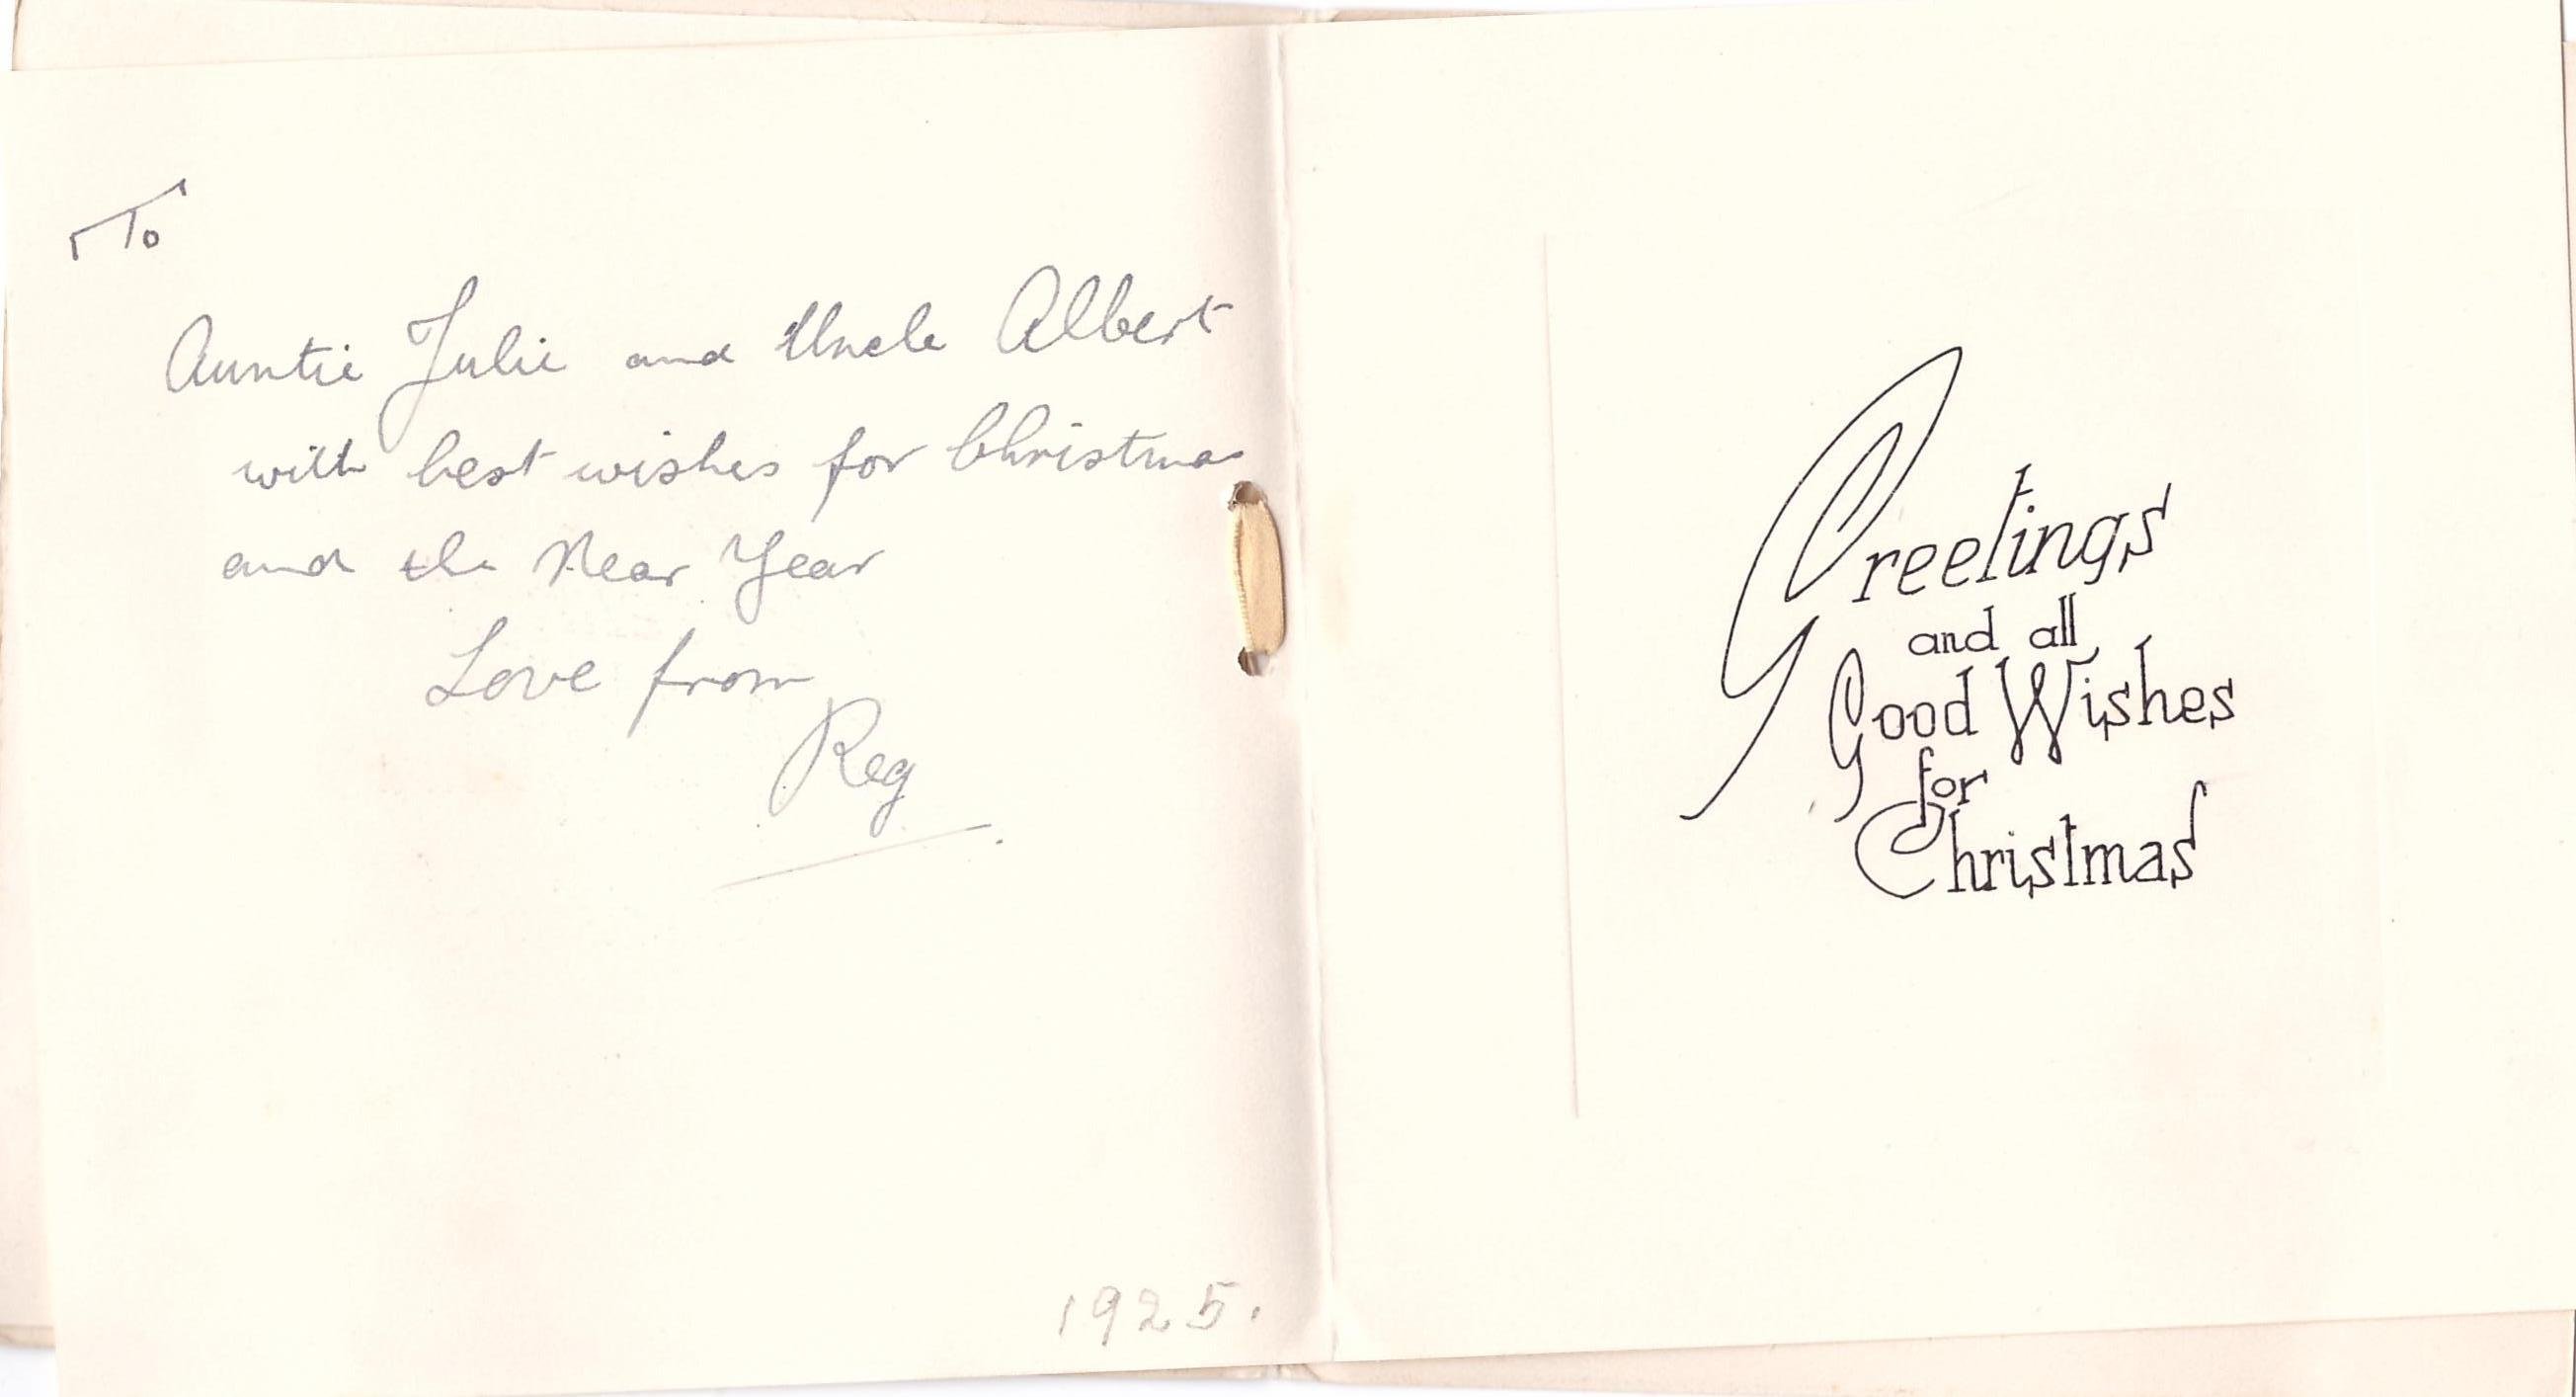 To
Auntie Julie and Uncle Albert
with best wishes for Christmas
and the Near Year
Love from
Reg
1925.
Greetings
and all
Good Wishes
for
Christmas